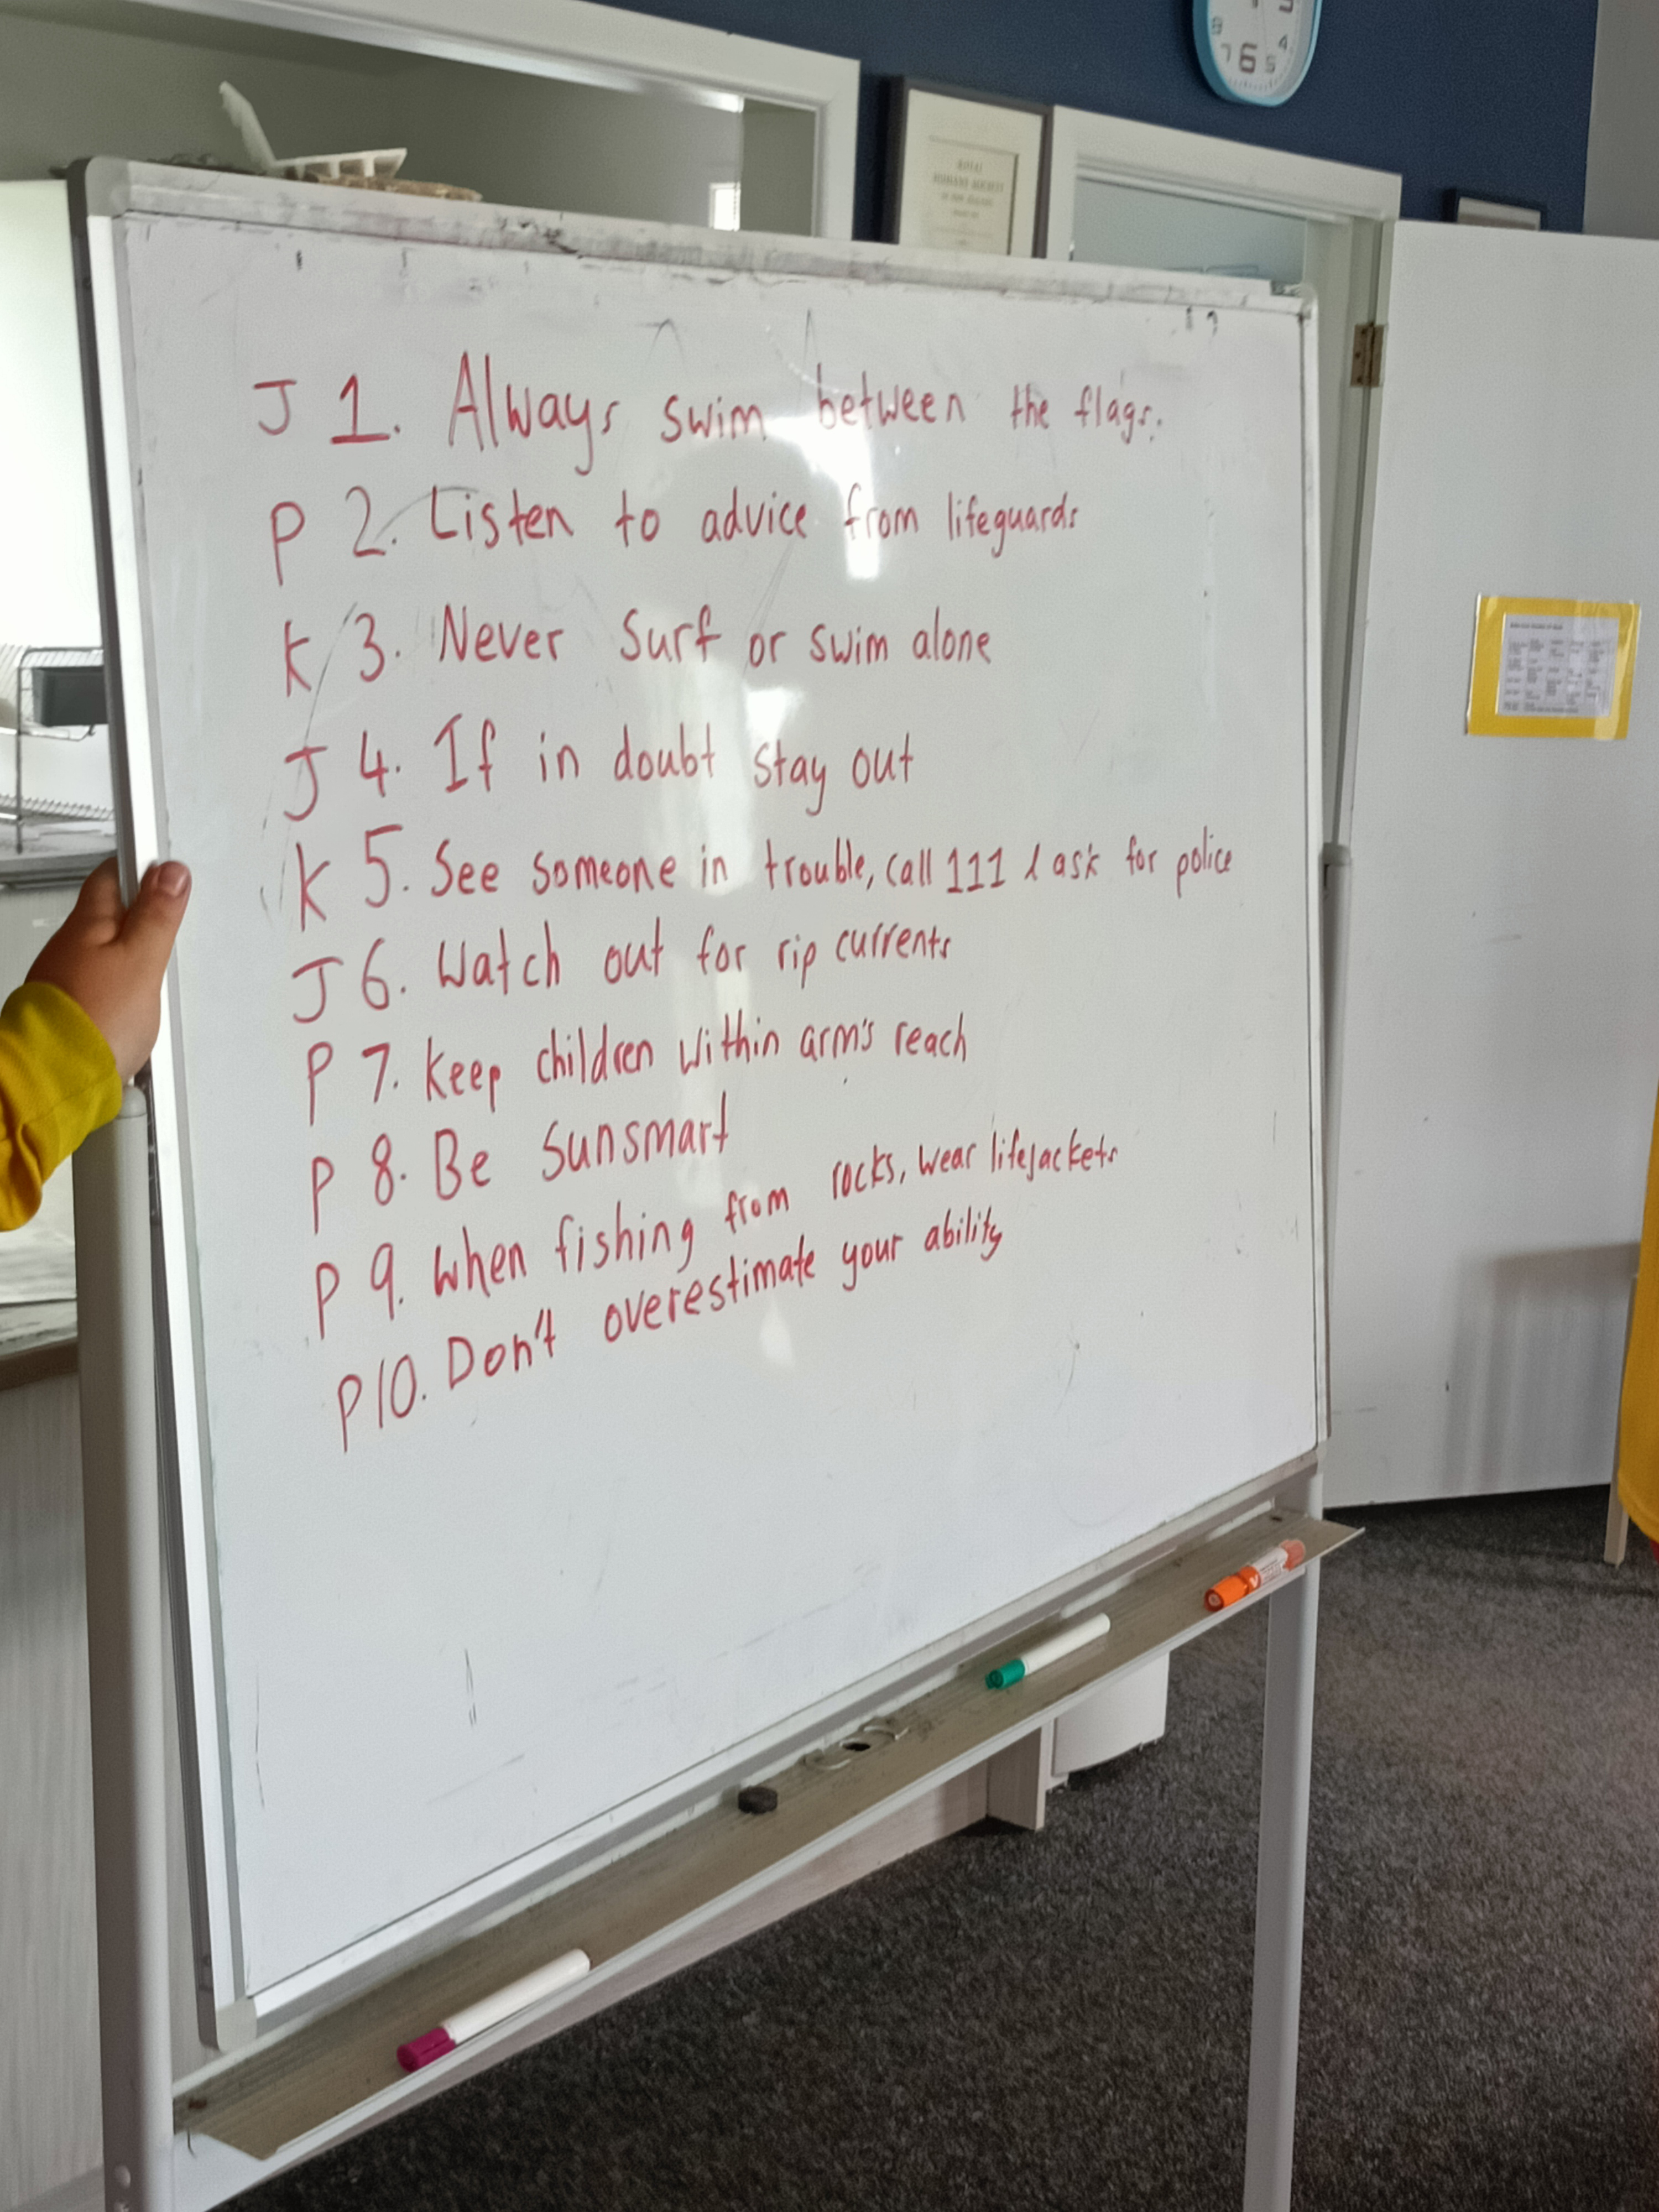 1 3 4 5 6 7 8
ROYAL
HUMANE SOCIETY
OF NEW ZEALAND
J 1. Always swim between the flags.
P 2. Listen to advice from lifeguards
K 3. Never surf or swim alone
J 4. If in doubt stay out
K 5. See someone in trouble, call 111 & ask for police
J 6. Watch out for rip currents
P 7. Keep children within arm's reach
P 8. Be Sunsmart
P 9. When fishing from rocks, wear lifejackets
P 10. Don't overestimate your ability